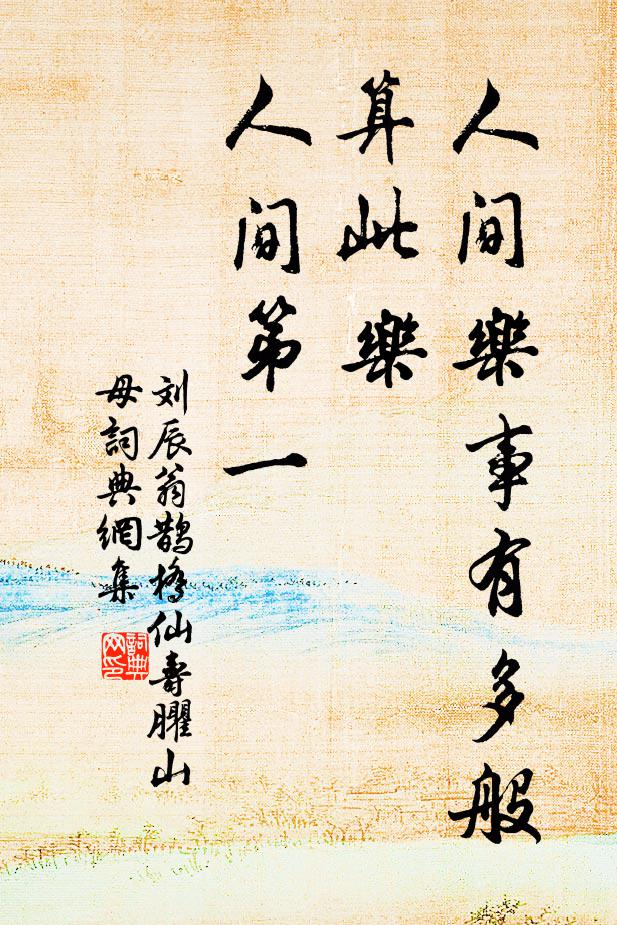 人间樂事有多般
算此樂
人间第一
刘辰翁鹊橋仙壽臞山
母詞典網集
詞典
网印